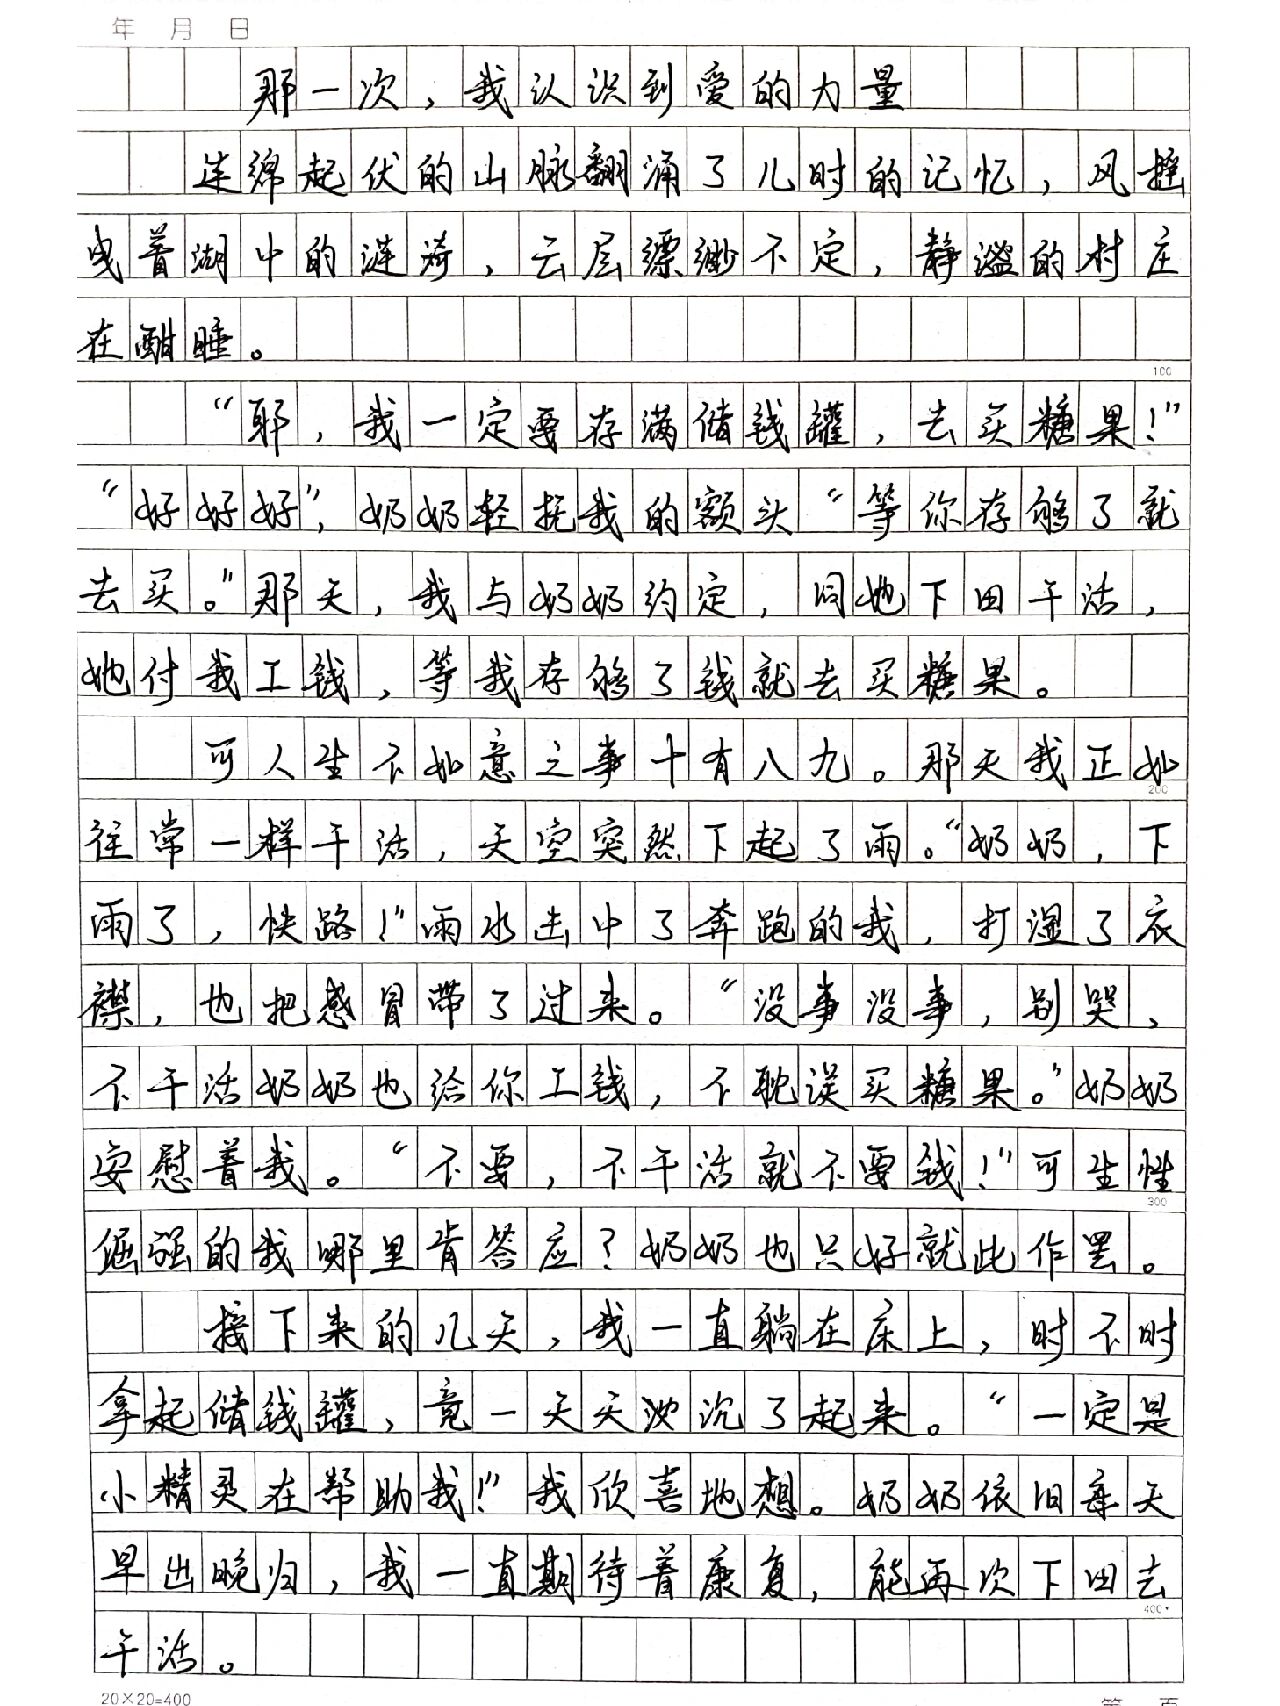 年 月 日
那一次，我认识到爱的力量
连绵起伏的山脉翻涌了儿时的记忆，风摇
曳着湖中的涟漪，云层缥缈不定，静谧的村庄
在酣睡。
100
“耶，我一定要存满储钱罐，去买糖果！”
“好好好”，奶奶轻抚我的额头“等你存够了就
去买。”那天，我与奶奶约定，同她下田干活，
她付我工钱，等我存够了钱就去买糖果。
可人生不如意之事十有八九。那天我正如
200
往常一样干活，天空突然下起了雨。“奶奶，下
雨了，快跑！”雨水击中了奔跑的我，打湿了衣
襟，也把感冒带了过来。“没事没事，别哭，
不干活奶奶也给你工钱，不耽误买糖果。”奶奶
安慰着我。“不要，不干活就不要钱！”可生性
300
倔强的我哪里肯答应？奶奶也只好就此作罢。
接下来的几天，我一直躺在床上，时不时
拿起储钱罐，竟一天天沉了起来。“一定是
小精灵在帮助我！”我欣喜地想。奶奶依旧每天
早出晚归，我一直期待着康复，能再次下田去
400
干活。
20×20=400
第 页